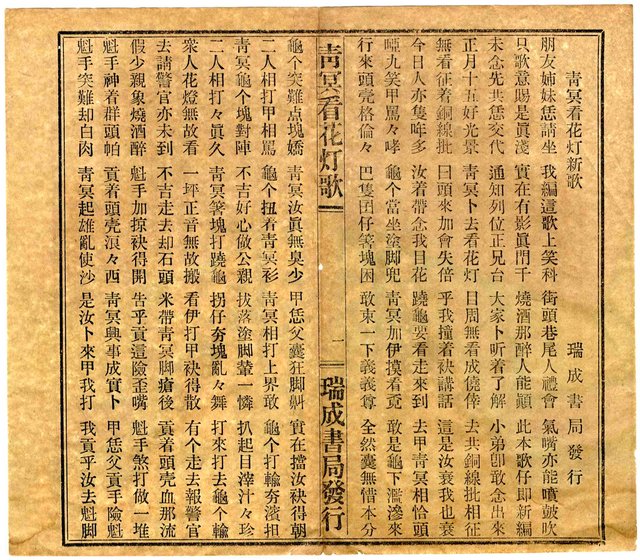 青冥看花灯新歌 瑞成書局發行
朋友姊妹恁請坐 我編這歌上笑科 街頭巷尾人禮會 氣嘴亦能噴鼓吹
只歌意賜是眞淺 實在有影眞鬥千 燒酒那醉人能顛 此本歌仔即新編
未念先共恁交代 通知列位正兄台 大家卜听着了解 小弟卽敢念出來
正月十五好光景 靑冥卜去看花灯 日周無看成僥倖 去共銅線批相征
無看征着銅線批 曰頭來加會失倍 乎我撞着袂講話 這是汝衰我也衰
今日人亦隻哖多 汝着帶念我目花 蹺龜要看走來到 去甲靑冥相恰頭
啞九笑甲罵々哮 龜个當坐塗脚兜 靑冥加伊摸看覓 敢是龜下濫滲來
行來頭壳格倫々 巴隻囝仔等塊困 敢束一下義義尊 全然囊無惜本分
靑冥看花灯歌 一 瑞成書局發行
龜个突難点塊嬌 靑冥汝眞無臭少 甲恁父囊狂脚斛 實在擋汝袂得朝
二人相打甲相罵 龜个扭着靑冥衫 靑冥相打上界敢 龜个打輸夯濱担
靑冥龜个塊對陣 不吉好心做公親 拔落塗脚輦一憐 扒起目滓汁々珍
二人相打々眞久 靑冥等塊打蹺龜 拐仔夯塊亂々舞 打來打去龜个輸
衆人花燈無故看 一坪正音無故搬 看伊打甲袂得散 有个走去報警官
去請警官亦未到 不吉走去却石頭 米帶靑冥脚瘡後 貢着頭壳血那流
假少親象燒酒醉 魁手加掠袂得開 告乎貢這險歪嘴 魁手煞打做一堆
魁手神着群頭帕 貢着頭壳滾々西 靑冥興事成實卜 甲恁父貢手險魁
魁手突難却白肉 靑冥起雄亂使沙 是汝卜來甲我打 我貢乎汝去魁脚